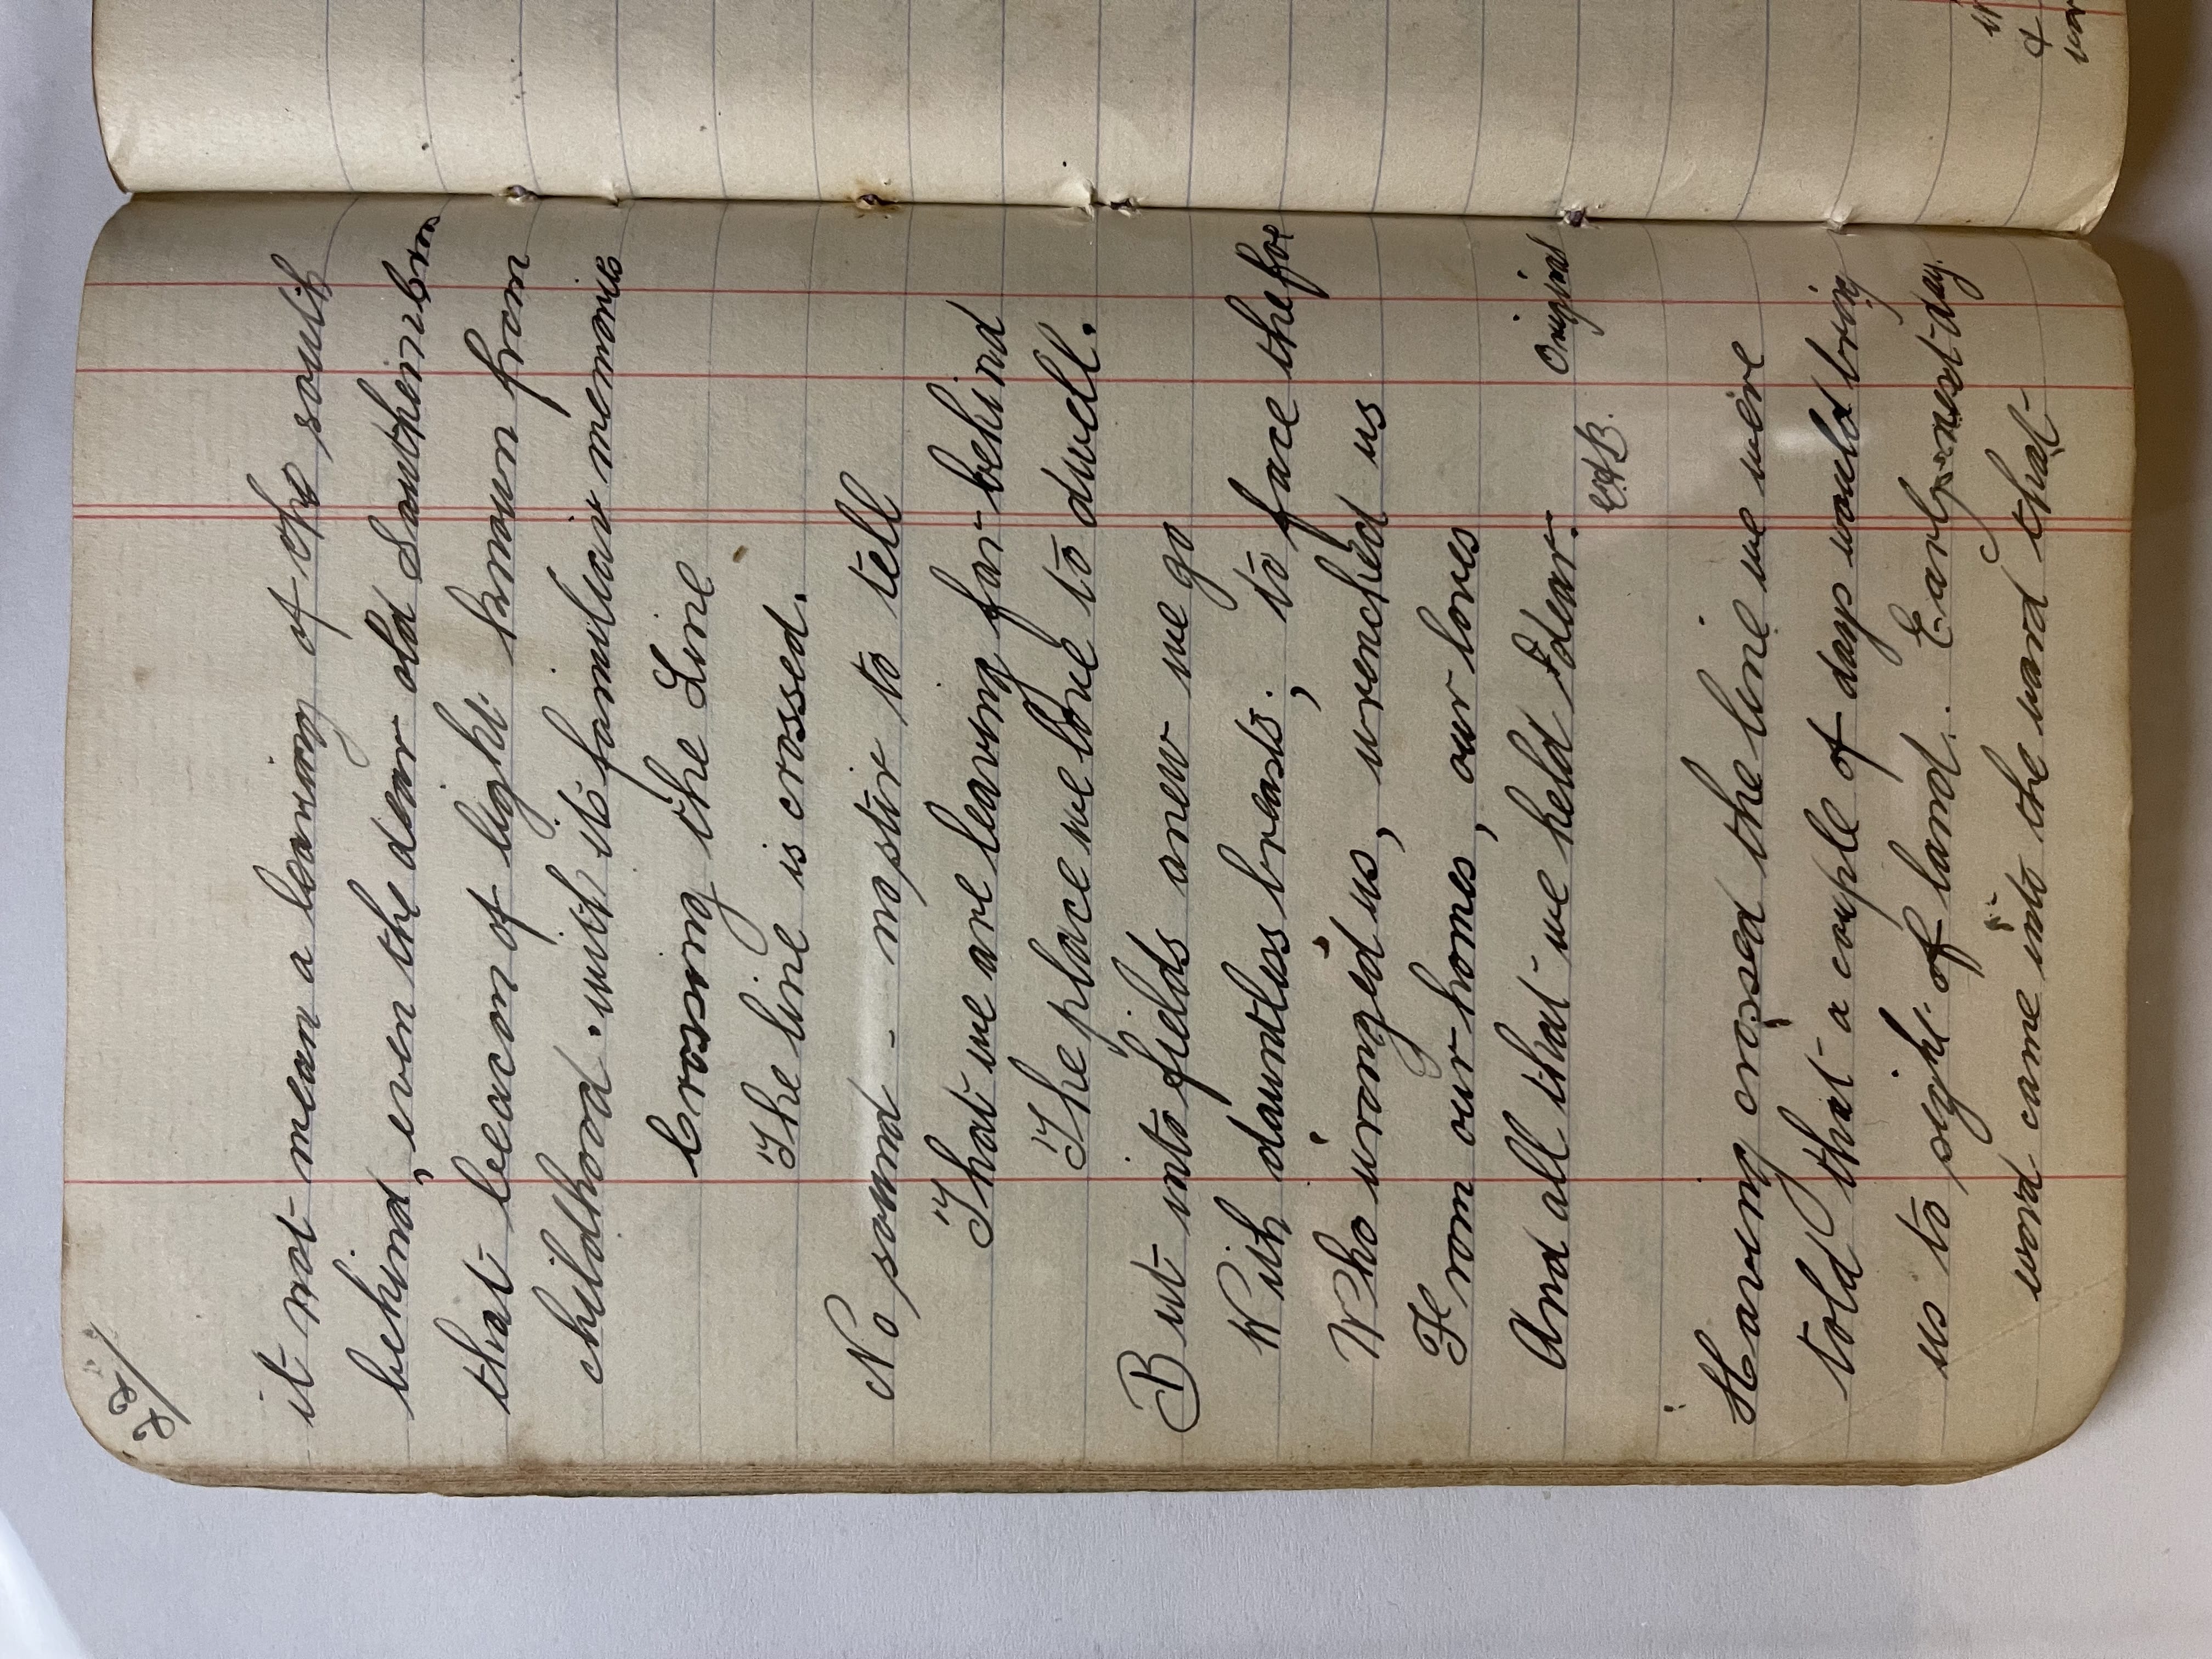 22
it not mean a leaving of the south
behind, even the dear old Southern Crn
that beacon of light known from
childhood with its familiar memories
Crossing the Line
The line is crossed.
No sound - no stir to tell
That we are leaving far behind
The place we love to dwell.
But into fields anew we go
With dauntless breasts, to face the foe
Who wronged us, wrenched us
From our homes, our loves
And all that we held dear.
Original
E.A.B.
Having crossed the line we were
told that a couple of days would bring
us to sight of land. Early next day
word came into the ward that